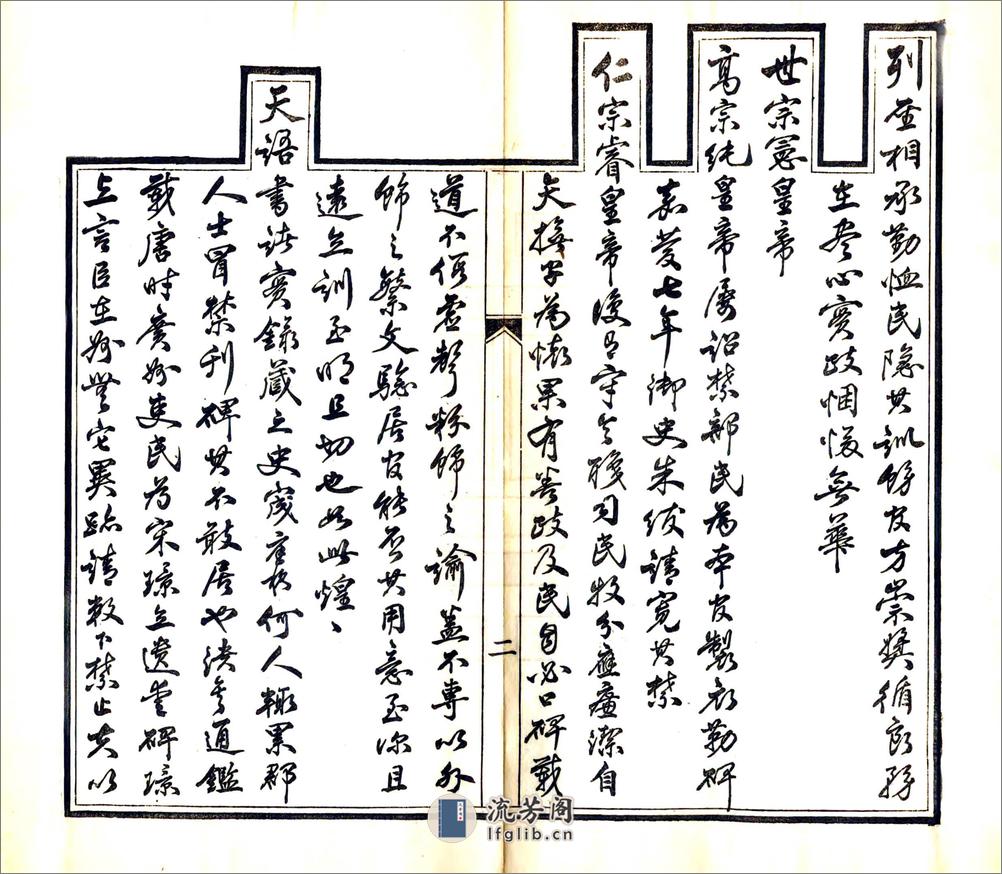 列聖相承勤恤民隱其訓飭官方崇獎循良務
在盡心實政悃愊無華
世宗憲皇帝
高宗純皇帝屢詔禁部民為本官製衣勒碑
嘉慶七年御史朱紱請寬其禁
仁宗睿皇帝復有守令職司民牧分應廉潔自
矢撫字為懷果有善政及民自必口碑載
二
道不假虛譽粉飾之諭蓋不專以外
飾之繁文驗居官能否其用意至深且
遠立訓至明且切也如此煌煌
天語書諸實錄藏之史宬座於何人輒累郡
人士冒禁刊碑其不敢居也讀通鑑
載唐時廣州吏民為宋璟立遺愛碑璟
上言臣在州無它異跡請敕下禁止夫以
流芳閣
lfglib.cn